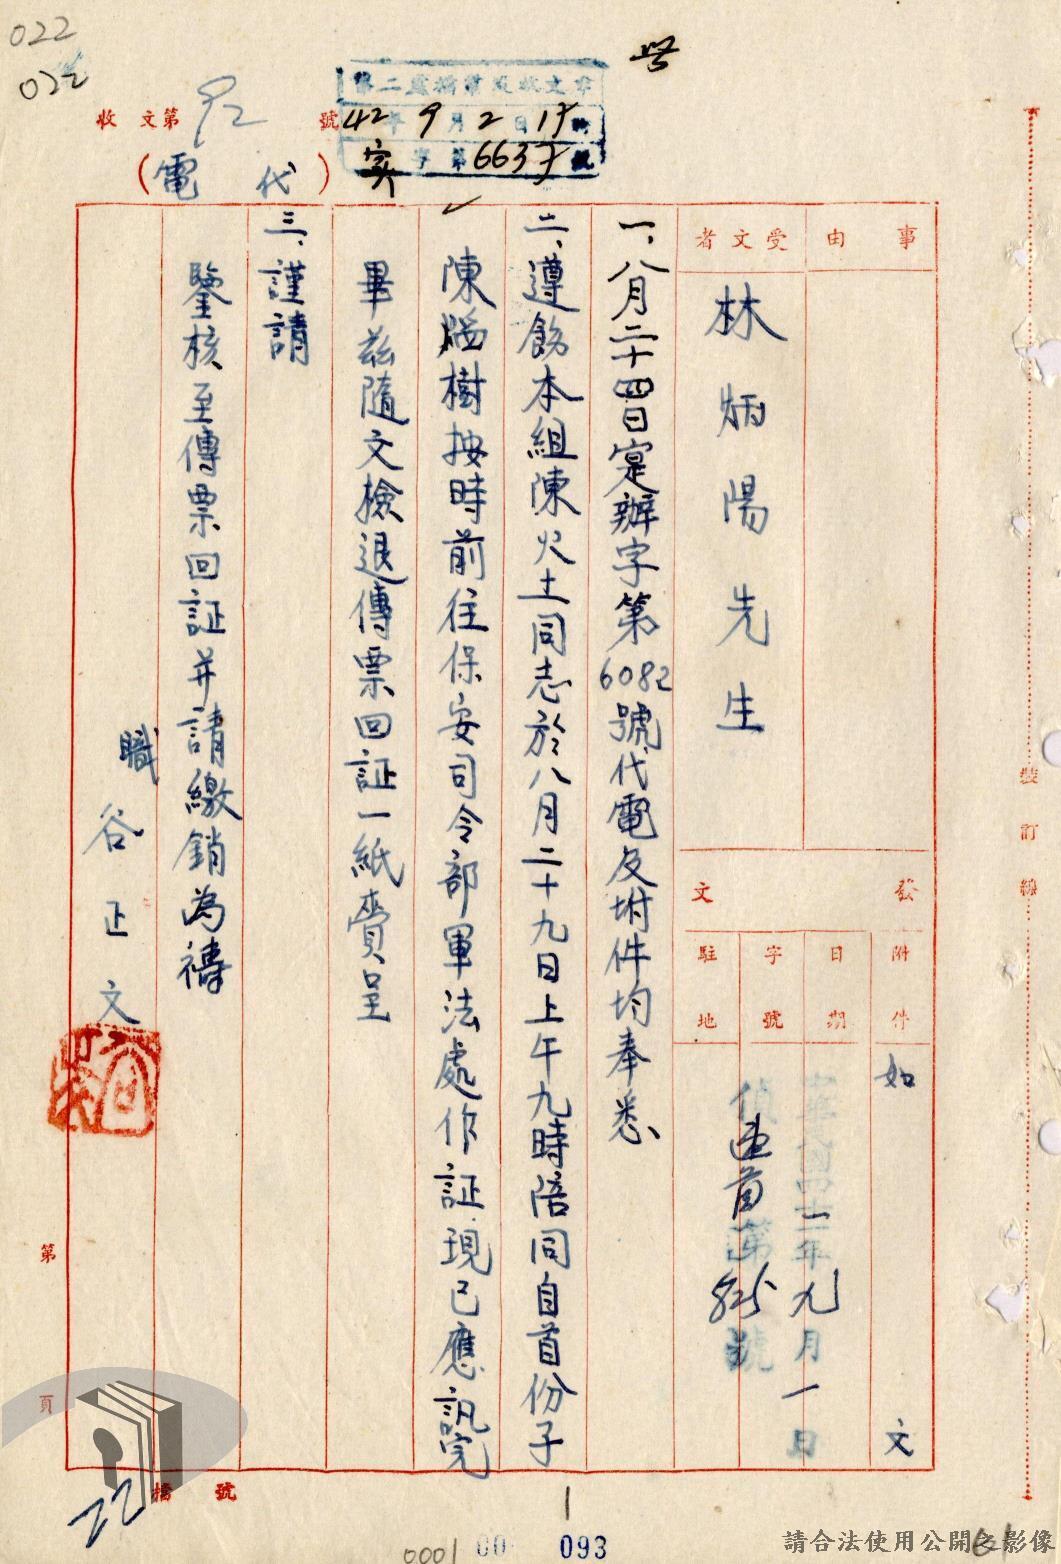 022
022
收文第92號
(代電)
第二處橋常組收文章
42年9月2日17時
實字第6637號
事由
受文者
林炳陽先生
發文
附件
如文
日期
中華民國四十二年九月一日
字號
偵 首 第825號
駐地
一、八月二十四日寔辦字第6082號代電及坿件均奉悉
二、遵飭本組陳火土同志於八月二十九日上午九時陪同自首份子
陳樹按時前往保安司令部軍法處作証現已應訊完
畢茲隨文檢退傳票回証一紙賫呈
三、謹請
鑒核至傳票回証并請繳銷為禱
職谷正文
裝訂線
第頁
檔號
22
1
0001
00
093
請合法使用公開之影像